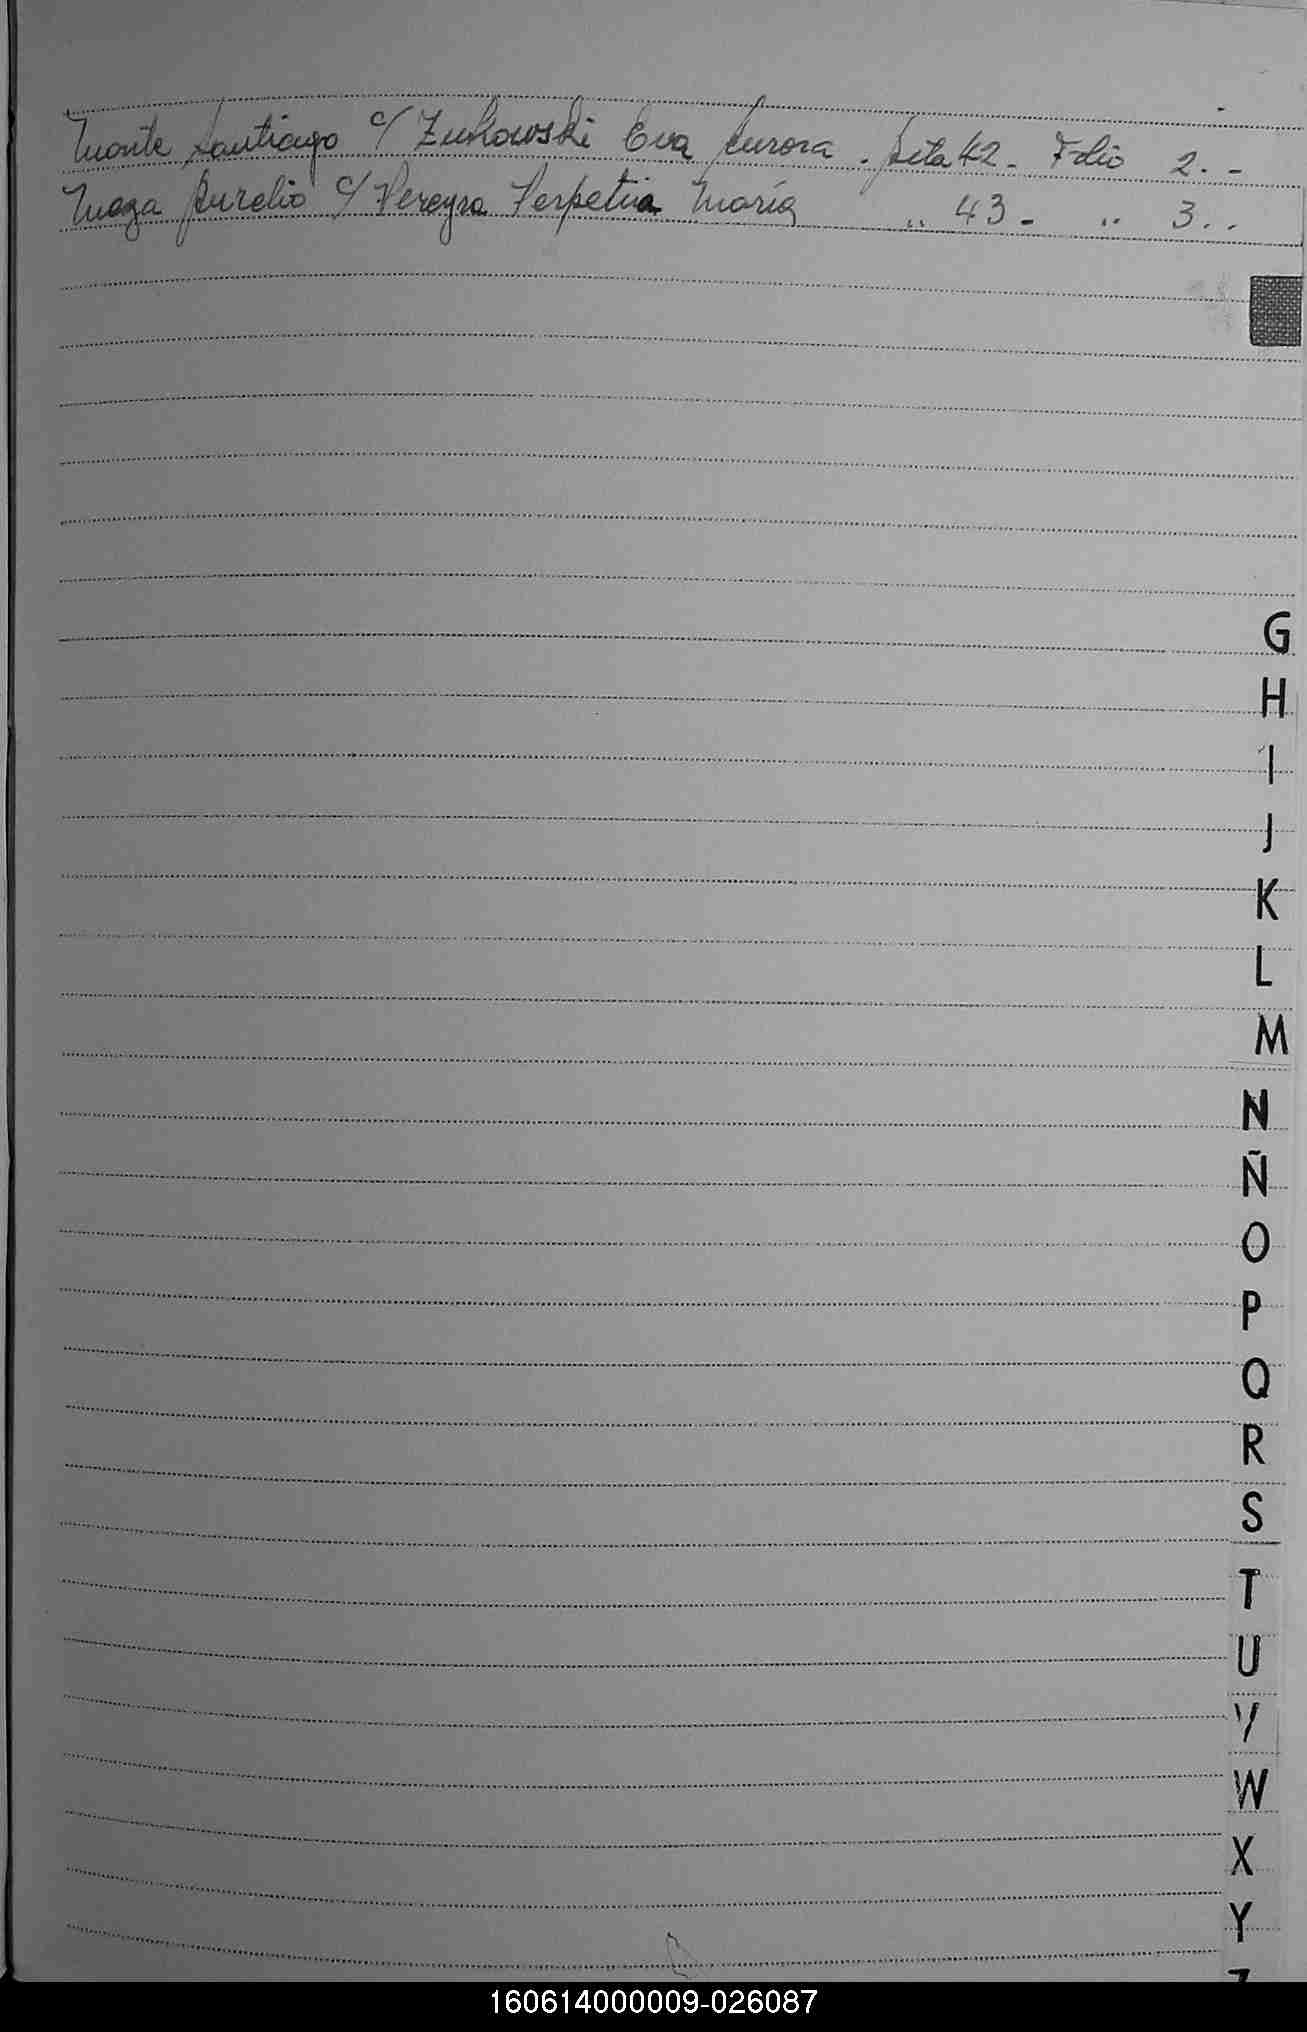 Monte Santiago c/ Zukowski Eva Aurora. Acta 42 - Folio 2. -
Maza Aurelio c/ Pereyra Perpetua María " 43 - " 3. -
G
H
I
J
K
L
M
N
Ñ
O
P
Q
R
S
T
U
V
W
X
Y
160614000009-026087